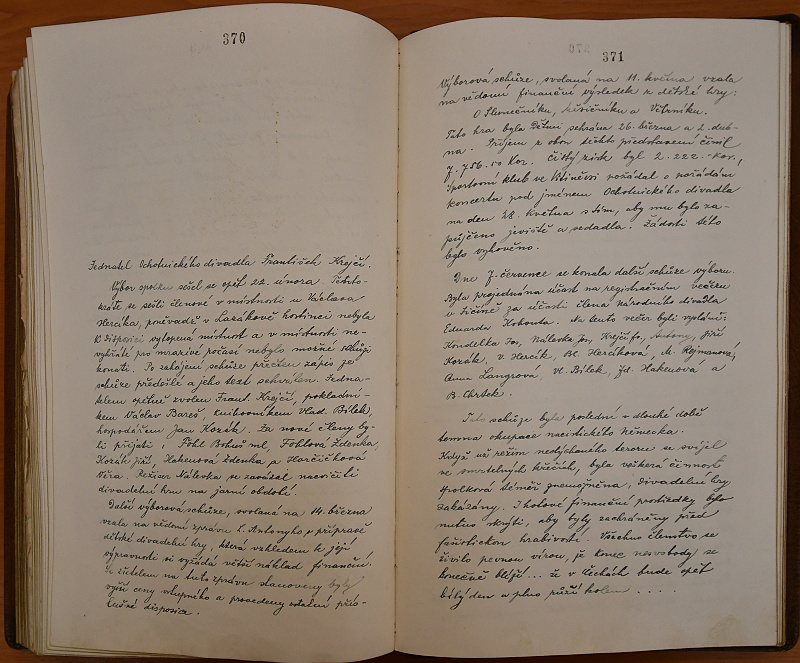 370
Jednatel Ochotnického divadla František Krejčí.
Výbor spolku sešel se opět 22. února. Tehdy
se sešli členové v místnosti u Václava
Hercíka, poněvadž v Lazákově hostinci nebyla
k disposici vytopená místnost a v místnosti ne-
vytopené pro mrazivé počasí nebylo možné schůzi
konati. Po zahájení schůze přečten zápis ze
schůze předešlé a jeho text schválen. Jedna-
telem opětně zvolen Frant. Krejčí, pokladní-
kem Václav Bareš, knihovníkem Vlad. Bílek,
hospodářem Jan Kozák. Za nové členy by-
li přijati: Pohl Bohuš ml, Pohlová Zdenka,
Kozák Jiří, Hakenová Zdenka a Horčičková
Věra. Režisér Nálevka se zavázal nacvičiti
divadelní hru na jarní období.
Další výborová schůze, svolaná na 14. března
vzala na vědomí zprávu L. Antonyho o přípravě
dětské divadelní hry, která vzhledem k její
výpravnosti si vyžádá větší náklad finanční.
Se zřetelem na tuto zprávu stanoveny byly
vyšší ceny vstupného a provedeny ostatní pří-
slušné disposice.
371
Výborová schůze, svolaná na 11. května vzala
na vědomí finanční výsledek z dětské hry:
O Slunečníku, Měsíčníku a Větrníku.
Tato hra byla dětmi sehrána 26. března a 2. dub-
na. Příjem z obou těchto představení činil
7.756.50 Kor. Čistý zisk byl 2.222.- Kor.,
Sportovní klub ve Vtiněvsi požádal o pořádání
koncertu pod jménem Ochotnického divadla
na den 28. května s tím, aby mu bylo za-
půjčeno jeviště a sedadla. Žádosti této
bylo vyhověno.
Dne 7. července se konala další schůze výboru.
Byla projednána účast na registračním večeru
v Jičíně za účasti člena Národního divadla
Eduarda Kohouta. Na tento večer byli vysláni:
Kondelka Jos, Nálevka Jos, Krejčí fr, Antony, Jiří
Kozák, V. Hercík, Bl. Hercíková, M. Rejmanová,
Anna Langrová, Vl. Bílek, Zd. Hakenová a
B. Chrtek.
Tato schůze byla poslední v dlouhé době
temna okupace nacistického Německa.
Když už režim nedýchaného teroru se svíjel
ve smrtelných křečích, byla veškerá činnost
spolková téměř znemožněna, divadelní hry
zakázány. I hotové finanční prostředky bylo
nutno skrýti, aby byly zachráněny před
fašistickou hrabivostí. Všechno členstvo se
živilo pevnou vírou, že konec nesvobody se
konečně blíží... že v Čechách bude opět
bílý den a plno růží kolem ....